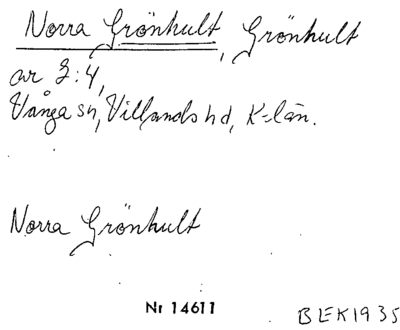 Norra Grönhult, Grönhult
av 2:4,
Vånga sn, Villands hd, K-län.
Norra Grönhult
Nr 14611
BLEK1935